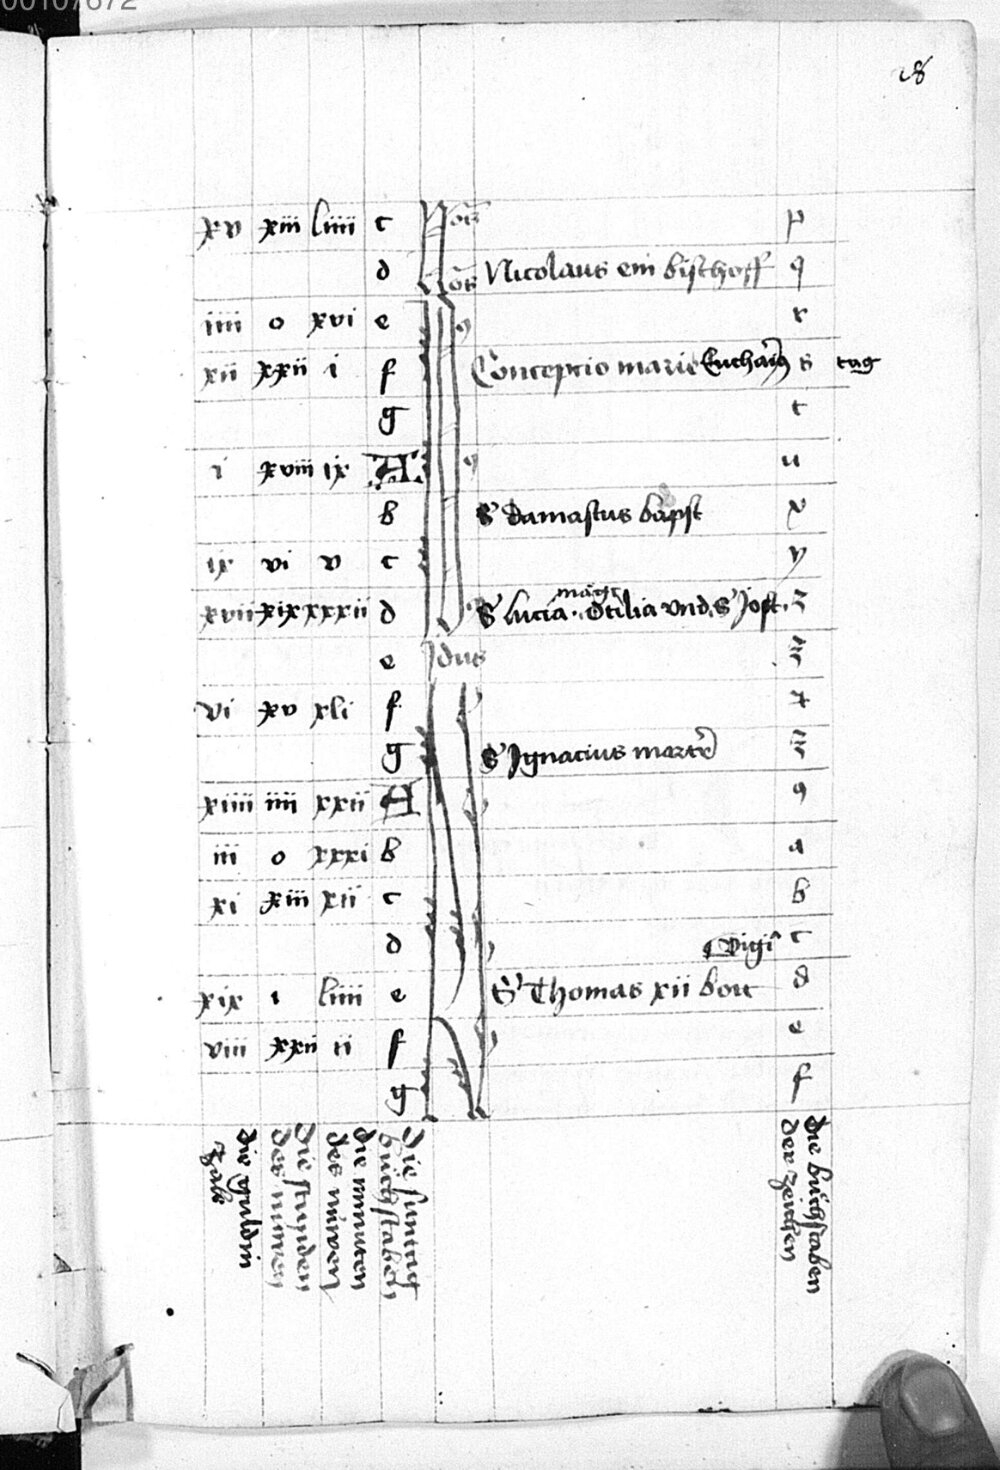 00107672
28
xv xiii liiii c Noñ p
d oñs Nicolaus ein bischoff q
iiii o xvi e r
xii xxii i f Conceptio marie Eucharius s tag
g t
i xviii ix A u
b S damastus bapst x
ix vi v c y
xvii xix xxxii d S lucia . Otilia vnd S Jost . z
magt
e Jdus
vi xv xli f
g S Ignacius martr
xiiii iiii xxii A 9
iii o xxxi b a
xi xiii xii c b
d Vigi c
xix i liiii e S Thomas xii bott d
viii xxii ii f e
g f
die guldin
zale
Die stunden
des nuwen
die minuten
des nuwen
Die suntag
buchstaben
die buchstaben
der zeichen